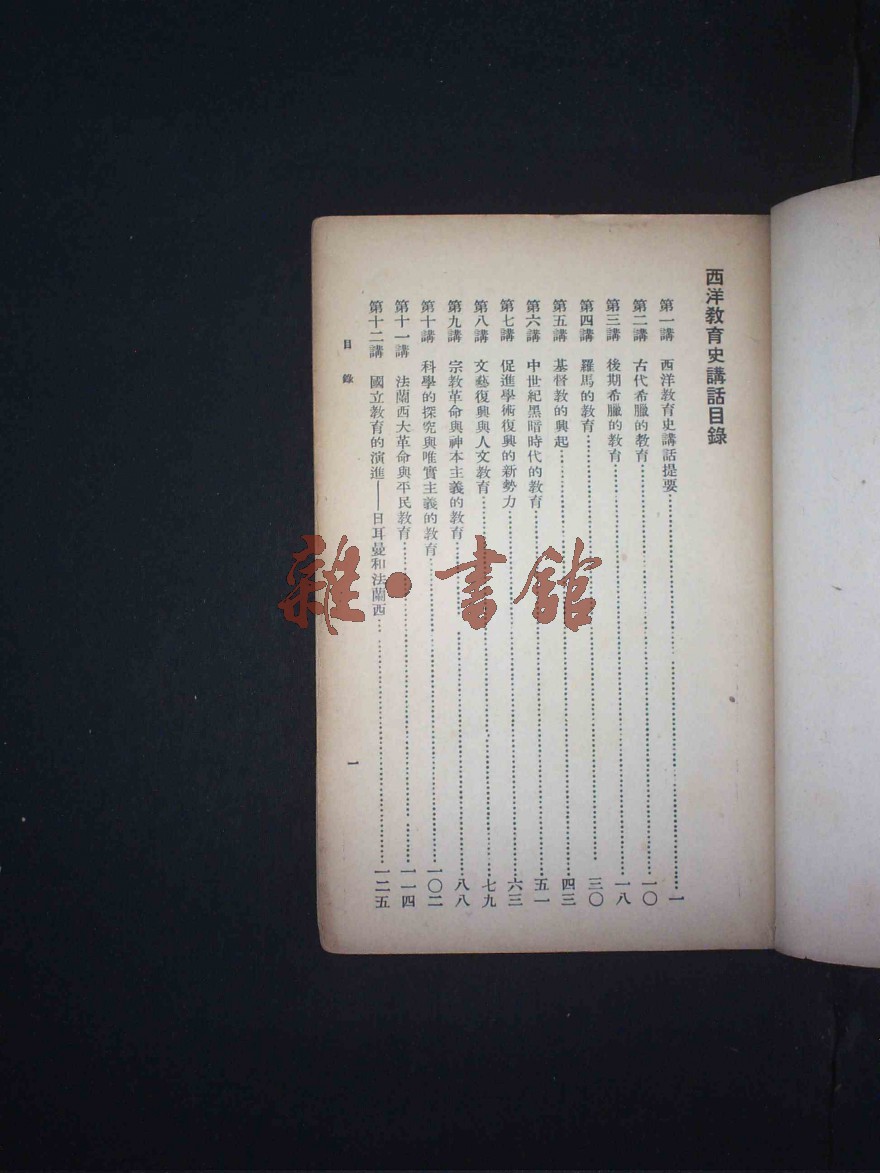 西洋教育史講話目錄
第一講　西洋教育史講話提要……一
第二講　古代希臘的教育……一〇
第三講　後期希臘的教育……一八
第四講　羅馬的教育……三〇
第五講　基督教的興起……四三
第六講　中世紀黑暗時代的教育……五一
第七講　促進學術復興的新勢力……六三
第八講　文藝復興與人文教育……七九
第九講　宗教革命與神本主義的教育……八八
第十講　科學的探究與唯實主義的教育……一〇二
第十一講　法蘭西大革命與平民教育……一一四
第十二講　國立教育的演進——日耳曼和法蘭西……一二五
目錄　一
雜·書館